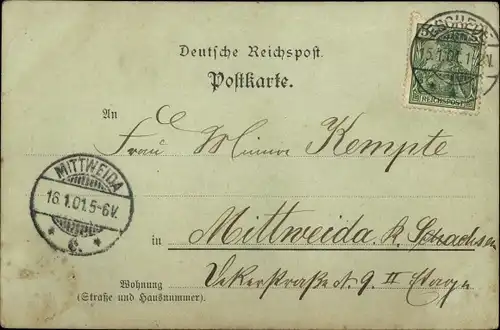 Deutsche Reichspost.
Postkarte.
15.1.01.
REICHSPOST
An
Frau Minna Kempte
MITTWEIDA
16.1.01.5-6V.
* c. *
in Mittweida Sachsen
9 II Etage
Wohnung
(Straße und Hausnummer).